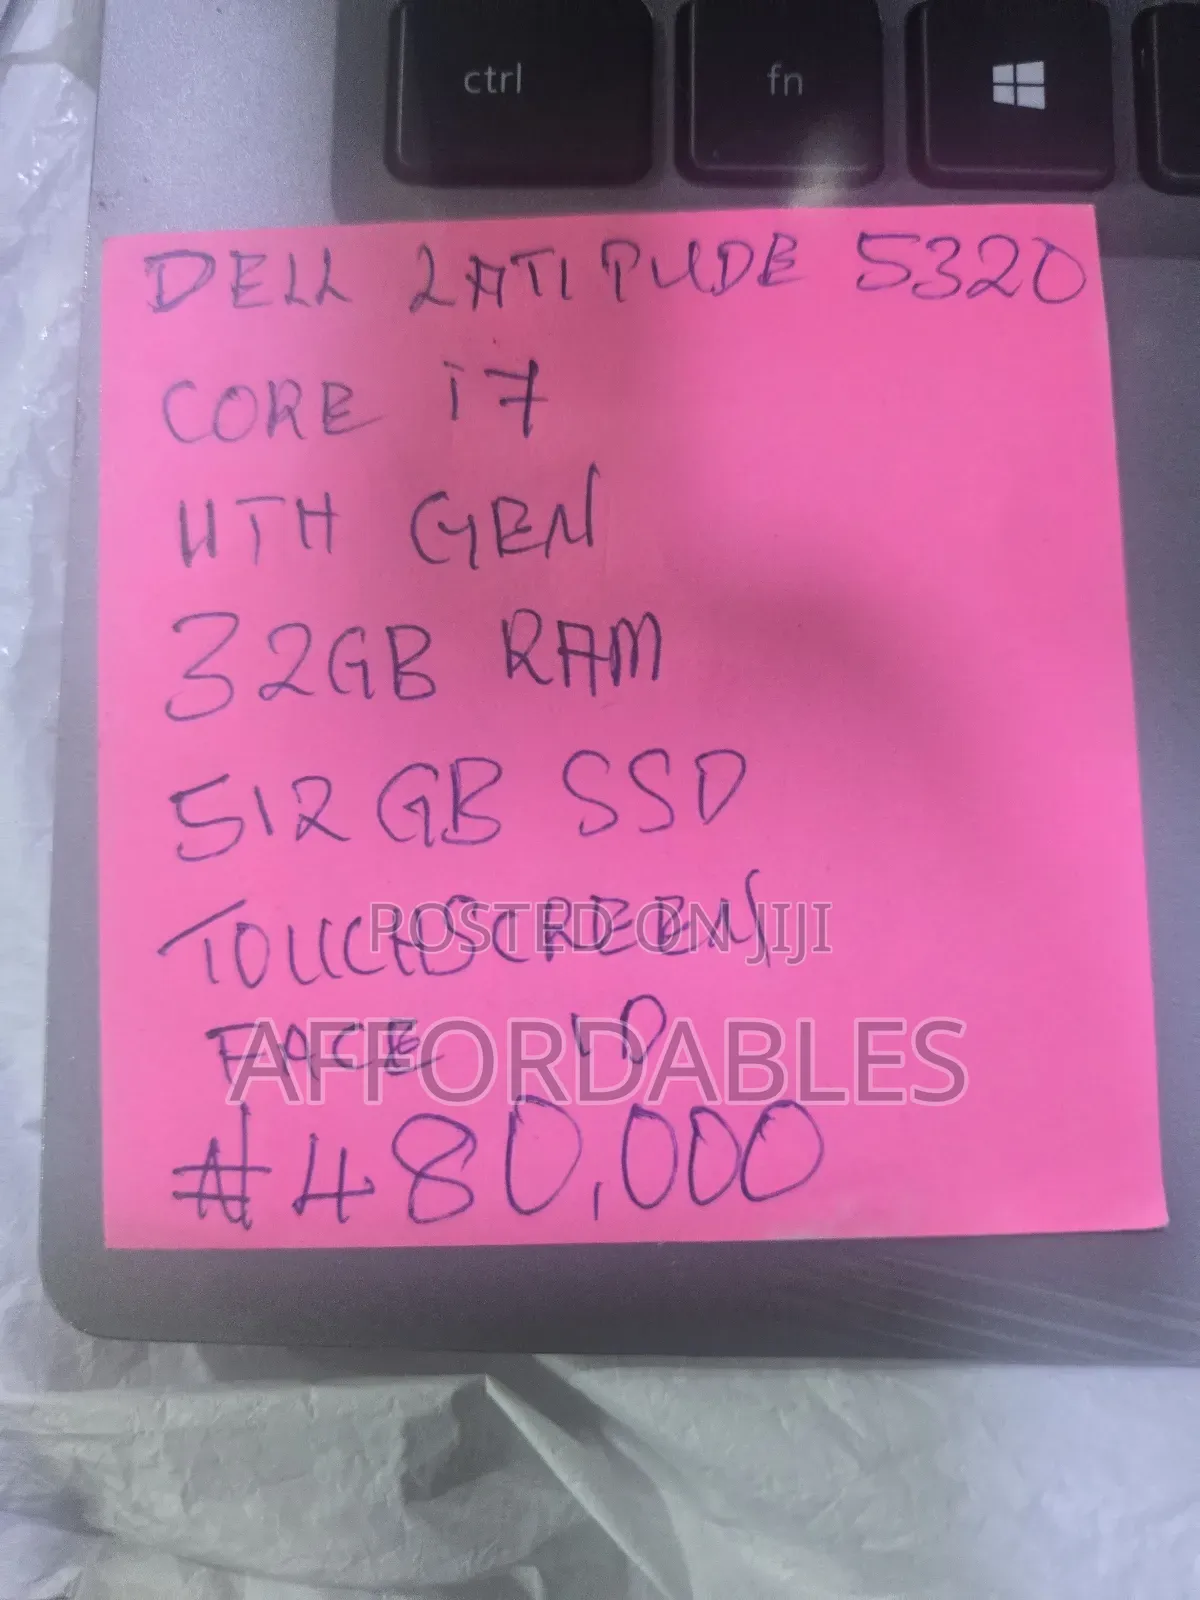 ctrl fn
DELL LATITUDE 5320
CORE i7
11TH GEN
32GB RAM
512GB SSD
TOUCHSCREEN
POSTED ON JIJI
FACE ID
AFFORDABLES
₦480,000